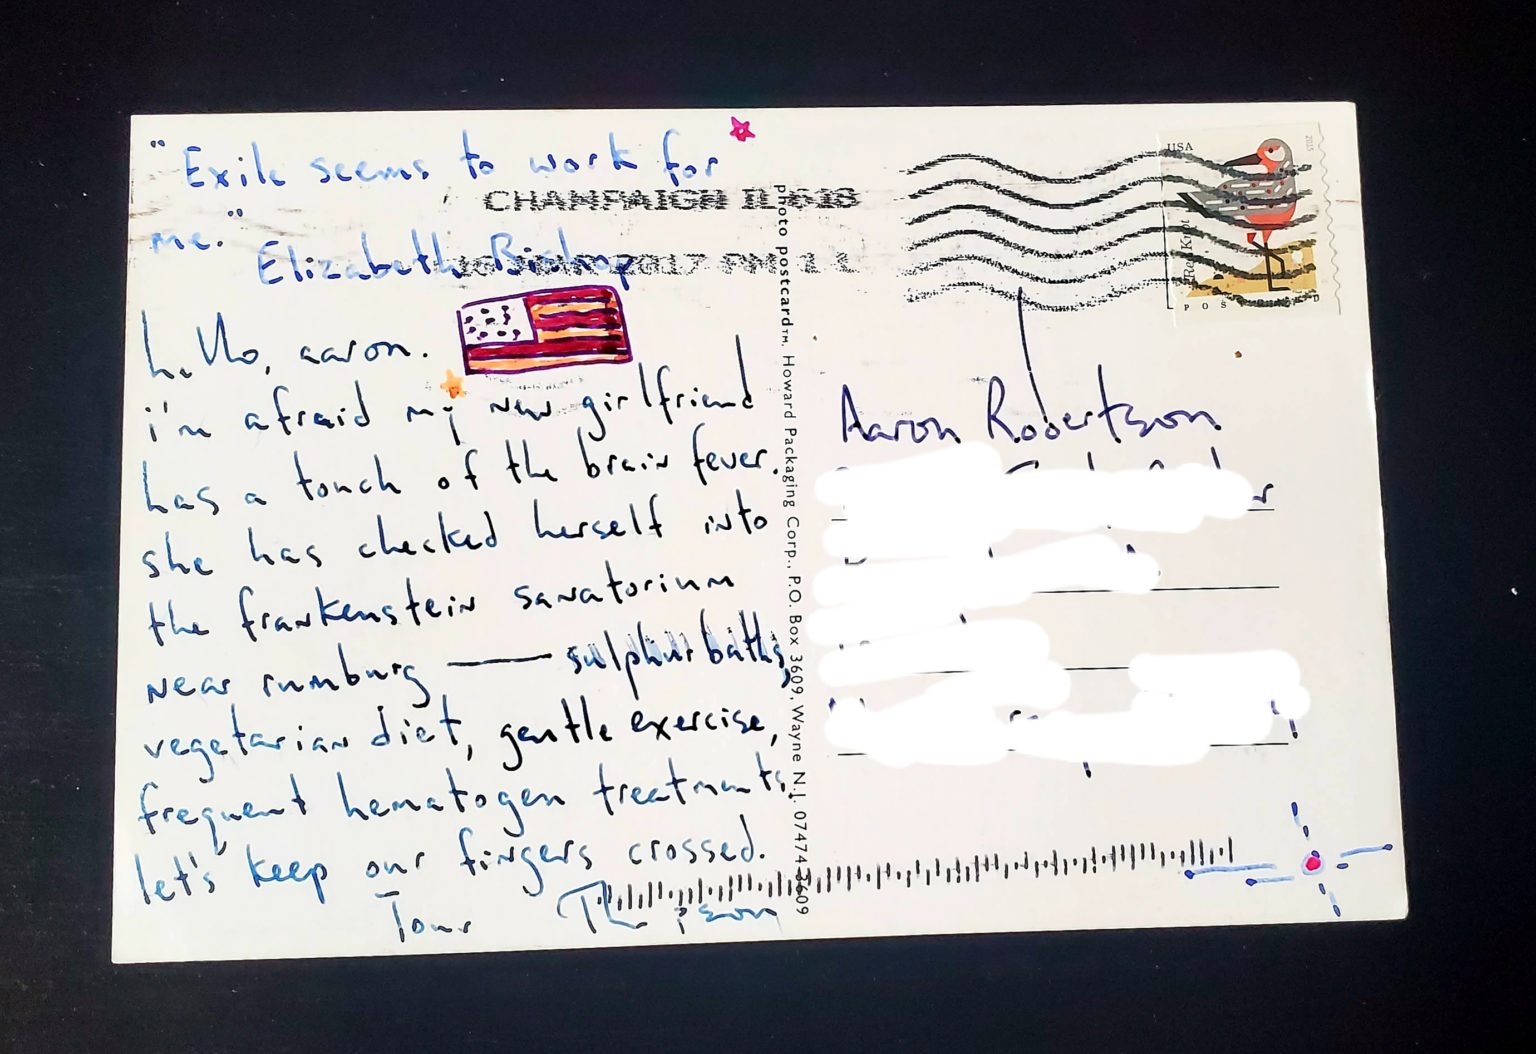 "Exile seems to work for
me."
Elizabeth Bishop
CHAMPAIGN IL 618
2017 PM 1 L
hello, aaron.
i'm afraid my new girlfriend
has a touch of the brain fever.
she has checked herself into
the frankenstein sanatorium
near rumburg — sulphur baths,
vegetarian diet, gentle exercise,
frequent hematogen treatments.
let's keep our fingers crossed.
Tour
photo postcard™. Howard Packaging Corp., P.O. Box 3609, Wayne N.J. 07474-3609
USA
2015
Red Knot
Aaron Robertson